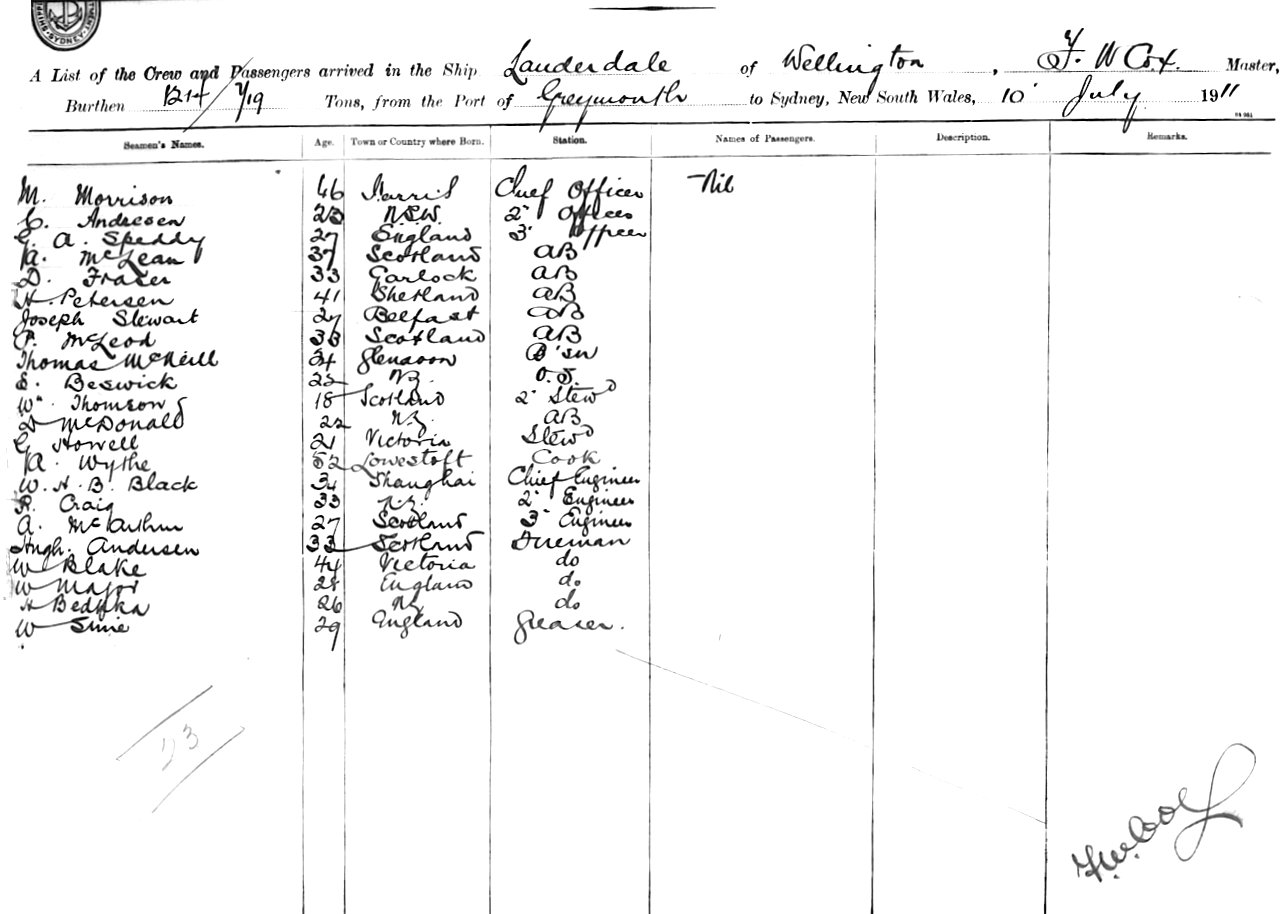 SHIPPING SYDNEY
A List of the Crew and Passengers arrived in the Ship Lauderdale of Wellington, F. W Cox. Master,
Burthen 1214 Tons, from the Port of Greymouth to Sydney, New South Wales, 10 July 1911
Seamen's Names. Age. Town or Country where Born. Station. Names of Passengers. Description. Remarks.
M. Morrison 46 Harris Chief Officer Nil
C. Andresen 23 N.S.W. 2" Officer
G. A. Speddy 27 England 3" Officer
K. McLean 37 Scotland AB
D. Fraser 33 Garlock AB
H. Petersen 41 Shetland AB
Joseph Stewart 27 Belfast AB
P. McLeod 33 Scotland AB
Thomas McNeill 34 Glenavon B'sn
E. Beswick 22 NZ. O.S.
Wm Thomson 18 Scotland 2" Stewd
D McDonald 22 N.Z. AB
G Howell 21 Victoria Stewd
A. Wythe 52 Lowestoft Cook
W. H. B. Black 34 Shanghai Chief Engineer
R. Craig 33 N.Z. 2" Engineer
A. McArthur 27 Scotland 3" Engineer
Hugh. Andersen 33 Scotland Fireman
W Blake 44 Victoria do
W Major 28 England do
H 26 NZ do
W 29 England Greaser.
23
F.W. Cox